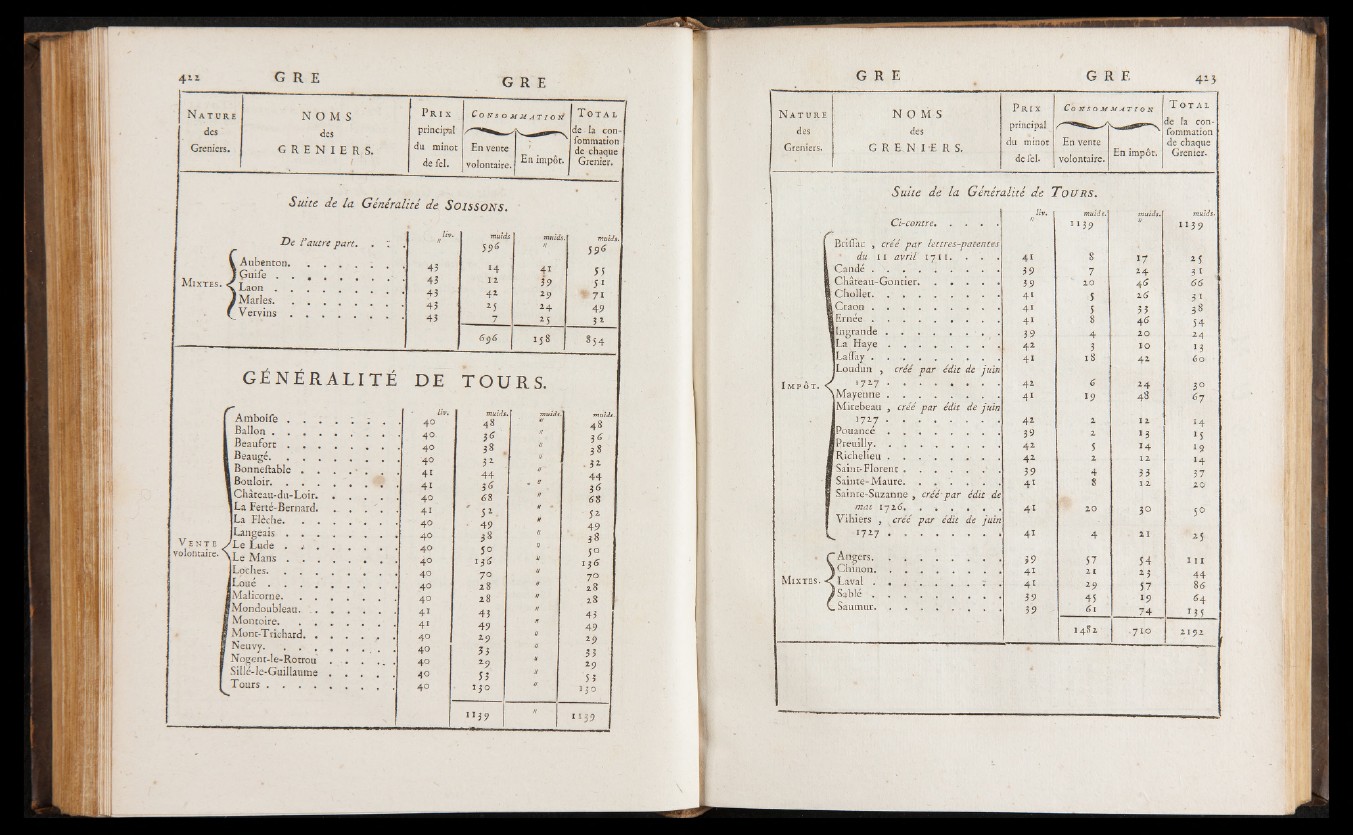 422 GRE GRE
NATURE des Greniers. NOMS des GRENIERS. PRIX principal du minot de ſel. CONSOMMATION En vente volontaire. En impôt. TOTAL de la conſommation de chaque Grenier.
Suite de la Généralité de SOISSONS.
liv. muids muids. muids.
De l'autre part. . . . " 596 " 596
MIXTES.
Aubenton. 43 14 41 55
Guiſe 43 12 39 51
Laon 43 42 29 71
Marles. 43 25 24 49
Vervins 43 7 25 32
696 158 854
GÉNÉRALITÉ DE TOURS.
liv. muids. muids. muids.
VENTE volontaire.
Amboiſe 40 48 " 48
Ballon 40 36 " 36
Beaufort 40 38 " 38
Beaugé. 40 32 " 32
Bonneſtable 41 44 " 44
Bouloir. 41 36 " 36
Château-du-Loir. 40 68 " 68
La Ferté-Bernard. 41 52 " 52
La Flèche. 40 49 " 49
Langeais 40 38 " 38
Le Lude 40 50 " 50
Le Mans 40 136 " 136
Loches. 40 70 " 70
Loué 40 28 " 28
Malicorne. 40 28 " 28
Mondoubleau. 41 43 " 43
Montoire. 41 49 " 49
Mont-Trichard. 40 29 " 29
Neuvy. 40 33 " 33
Nogent-le-Rotrou 40 29 " 29
Sillé-le-Guillaume 40 53 " 53
Tours 40 130 " 130
1139 " 1139
GRE GRE 423
NATURE des Greniers. NOMS des GRENIERS. PRIX principal du minot de ſel. CONSOMMATION En vente volontaire. En impôt. TOTAL de la conſommation de chaque Grenier.
Suite de la Généralité de TOURS.
liv. muids. muids. muids.
Ci-contre. " 1139 " 1139
IMPÔT.
Briſſac , créé par lettres-patentes
du 11 avril 1711. 41 8 17 25
Candé 39 7 24 31
Château-Gontier. 39 20 46 66
Chollet. 41 5 26 31
Craon 41 5 33 38
Ernée 41 8 46 54
Ingrande 39 4 20 24
La Haye 42 3 10 13
Laſſay 41 18 42 60
Loudun , créé par édit de juin
1727 42 6 24 30
Mayenne 41 19 48 67
Mirebeau , créé par édit de juin
1727 42 2 12 14
Pouancé 39 2 13 15
Preuilly. 42 5 14 19
Richelieu 42 2 12 14
Saint-Florent 39 4 33 37
Sainte-Maure. 41 8 12 20
Sainte-Suzanne , créé par édit de
mai 1726. 41 20 30 50
Vihiers , créé par édit de juin
1727 41 4 21 25
MIXTES.
Angers. 39 57 54 111
Chinon. 41 21 23 44
Laval 41 29 57 86
Sablé 39 45 19 64
Saumur. 39 61 74 135
1482 710 2192